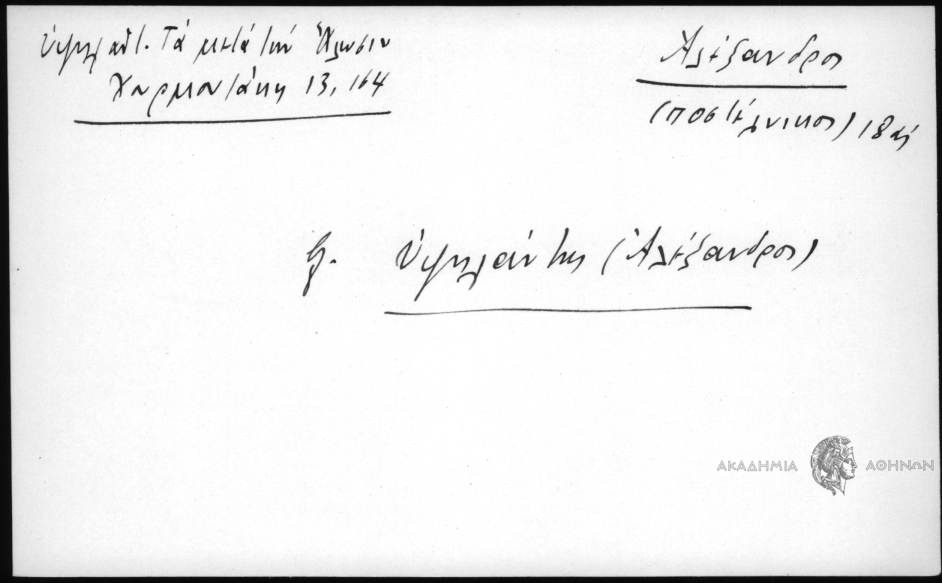 Ὑψηλαντ. Τά μετά τήν Ἅλωσιν
Χουρμουζάκη 13, 164
Ἀλέξανδρος
(ποστέλνικος) 18 αἰ
Ὑψηλάντης (Ἀλέξανδρος)
ΑΚΑΔΗΜΙΑ ΑΘΗΝΩΝ